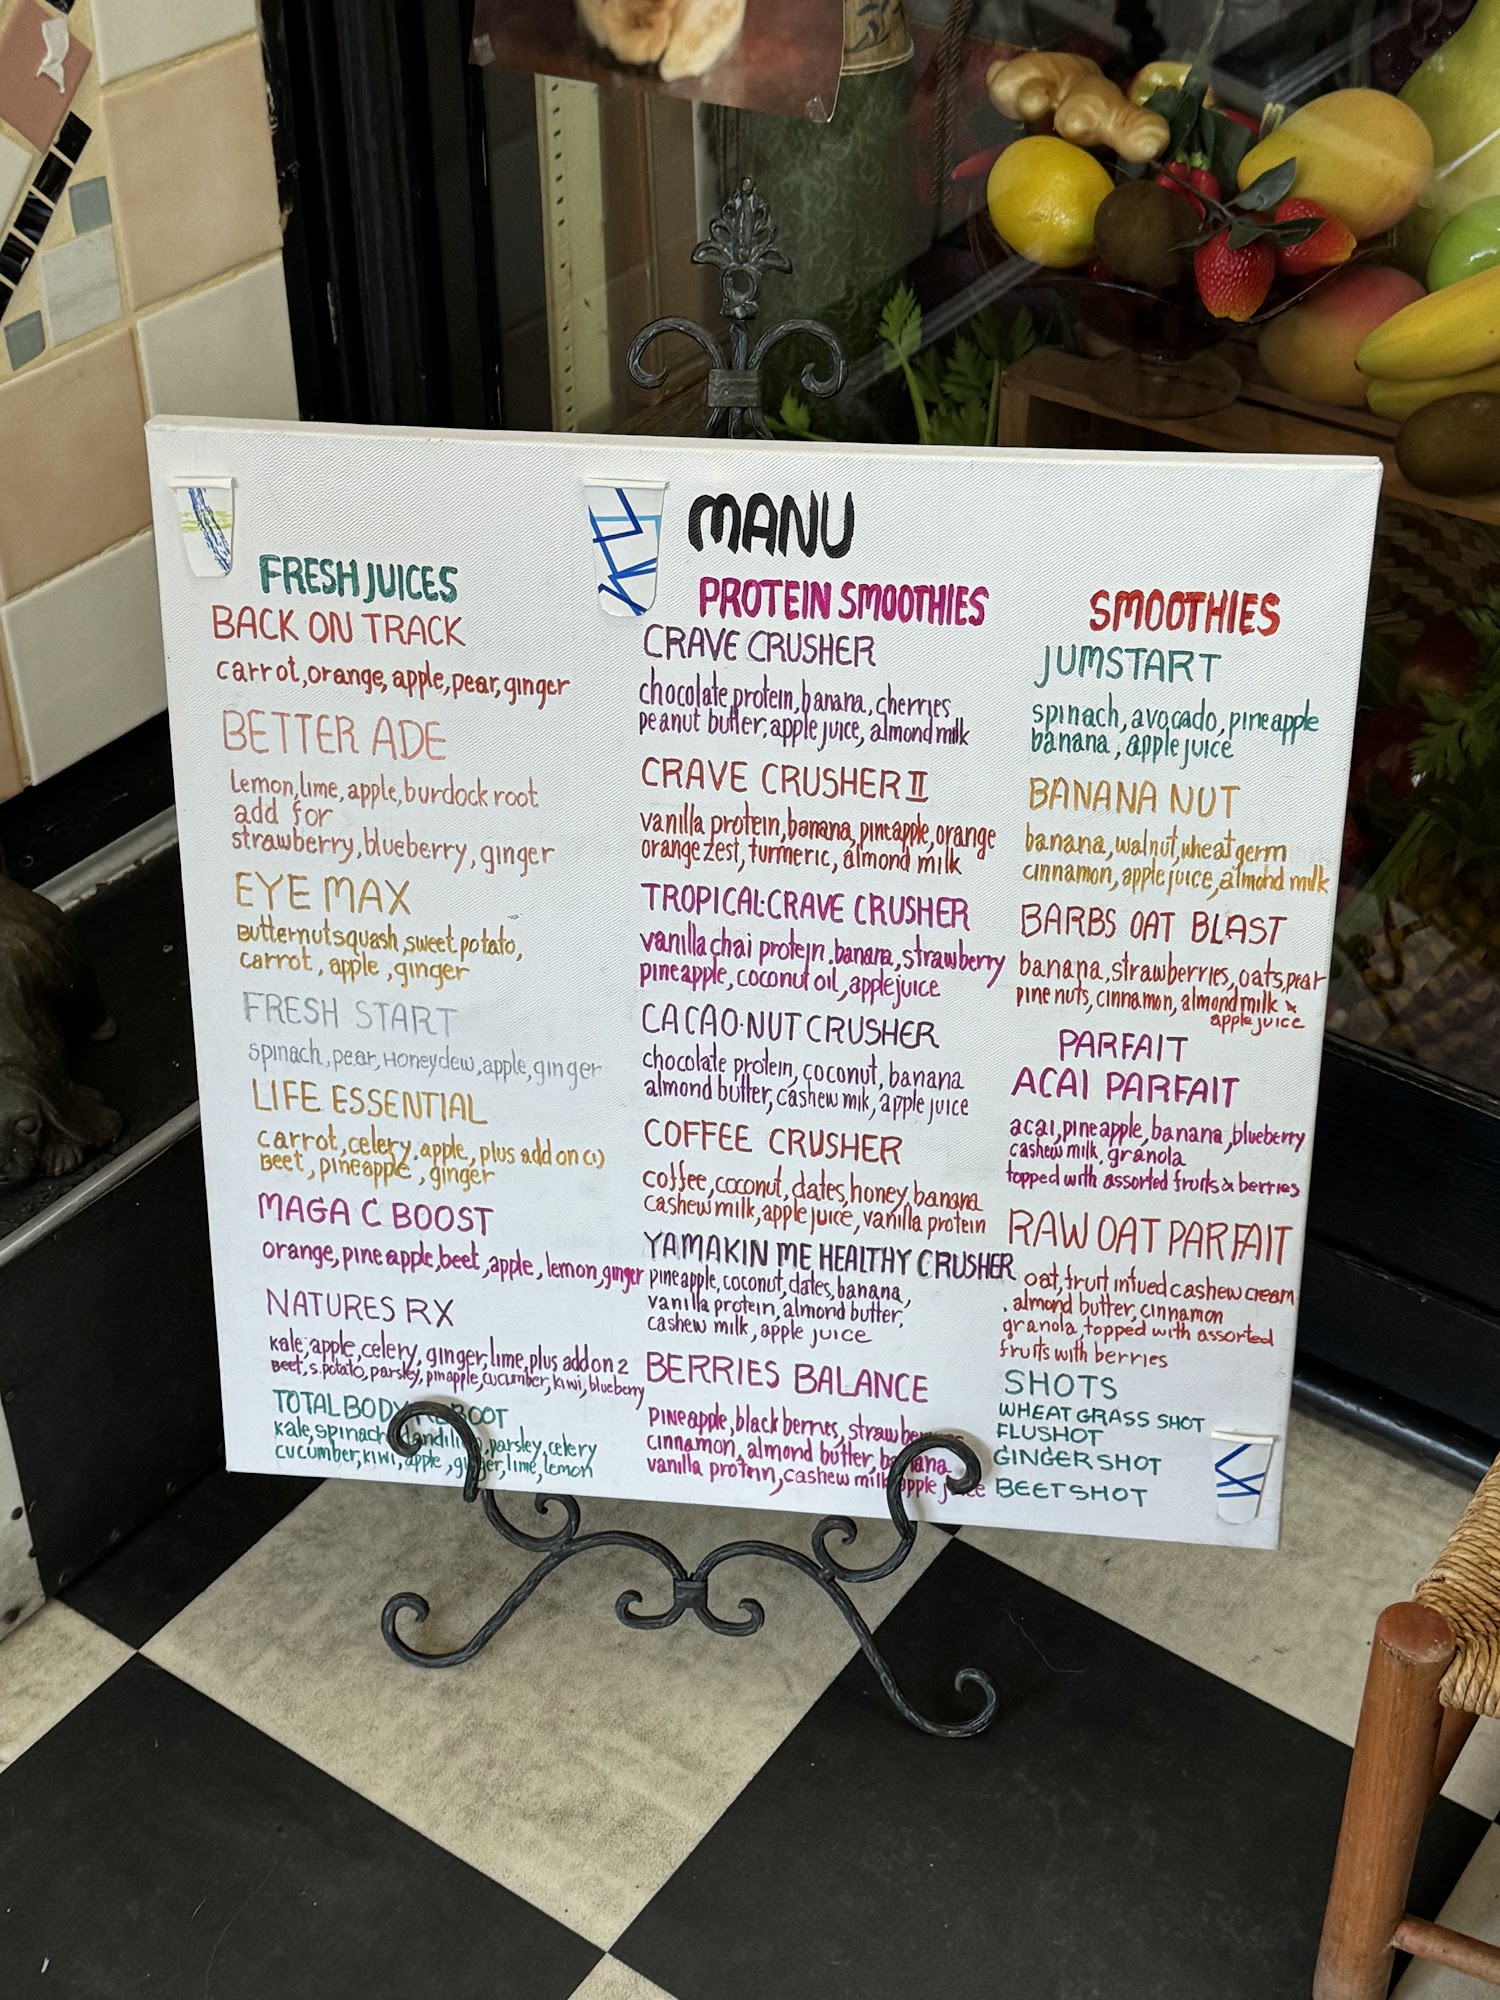 MANU
FRESH JUICES
BACK ON TRACK
carrot,orange, apple,pear,ginger
BETTER ADE
Lemon,lime,apple,burdock root
add for
strawberry,blueberry,ginger
EYE MAX
Butternutsquash,sweet potato,
carrot, apple,ginger
FRESH START
spinach,pear,Honeydew,apple,ginger
LIFE ESSENTIAL
carrot,celery,apple, plus add on (1)
Beet, pineapple, ginger
MAGA C BOOST
orange,pineapple,beet,apple, lemon,ginger
NATURES RX
kale,apple,celery, ginger,lime,plus add on 2
Beet,s.potato,parsley,pinapple,cucumber,kiwi,blueberry
TOTAL BODY
kale,spinach, parsley,celery
cucumber,kiwi,apple, lime,lemon
PROTEIN SMOOTHIES
CRAVE CRUSHER
chocolate protein,banana, cherries
peanut butter,apple juice, almond milk
CRAVE CRUSHER II
vanilla protein,banana,pineapple,orange
orange zest, turmeric, almond milk
TROPICAL·CRAVE CRUSHER
vanilla chai protein.banana,strawberry
pineapple,coconut oil,applejuice
CACAO·NUT CRUSHER
chocolate protein, coconut,banana
almond butter, cashew mik, apple juice
COFFEE CRUSHER
coffee,coconut,dates,honey,banana
cashew milk,apple juice, vanilla protein
YAMAKIN ME HEALTHY CRUSHER
pineapple,coconut,dates,banana,
vanilla protein,almond butter,
cashew milk, apple juice
BERRIES BALANCE
pineapple,blackberries,
cinnamon, almond butter, banana
vanilla protein,cashew milk apple
SMOOTHIES
JUMSTART
spinach, avocado, pineapple
banana, apple juice
BANANA NUT
banana,walnut,wheat germ
cinnamon,apple juice,almond milk
BARBS OAT BLAST
banana,strawberries,oats,pear
pine nuts,cinnamon,almond milk &
apple juice
PARFAIT
ACAI PARFAIT
acai,pineapple,banana,blueberry
cashew milk, granola
topped with assorted fruits & berries
RAW OAT PARFAIT
oat,fruit infued cashew cream
almond butter,cinnamon
granola,topped with assorted
fruits with berries
SHOTS
WHEAT GRASS SHOT
FLUSHOT
GINGER SHOT
BEET SHOT